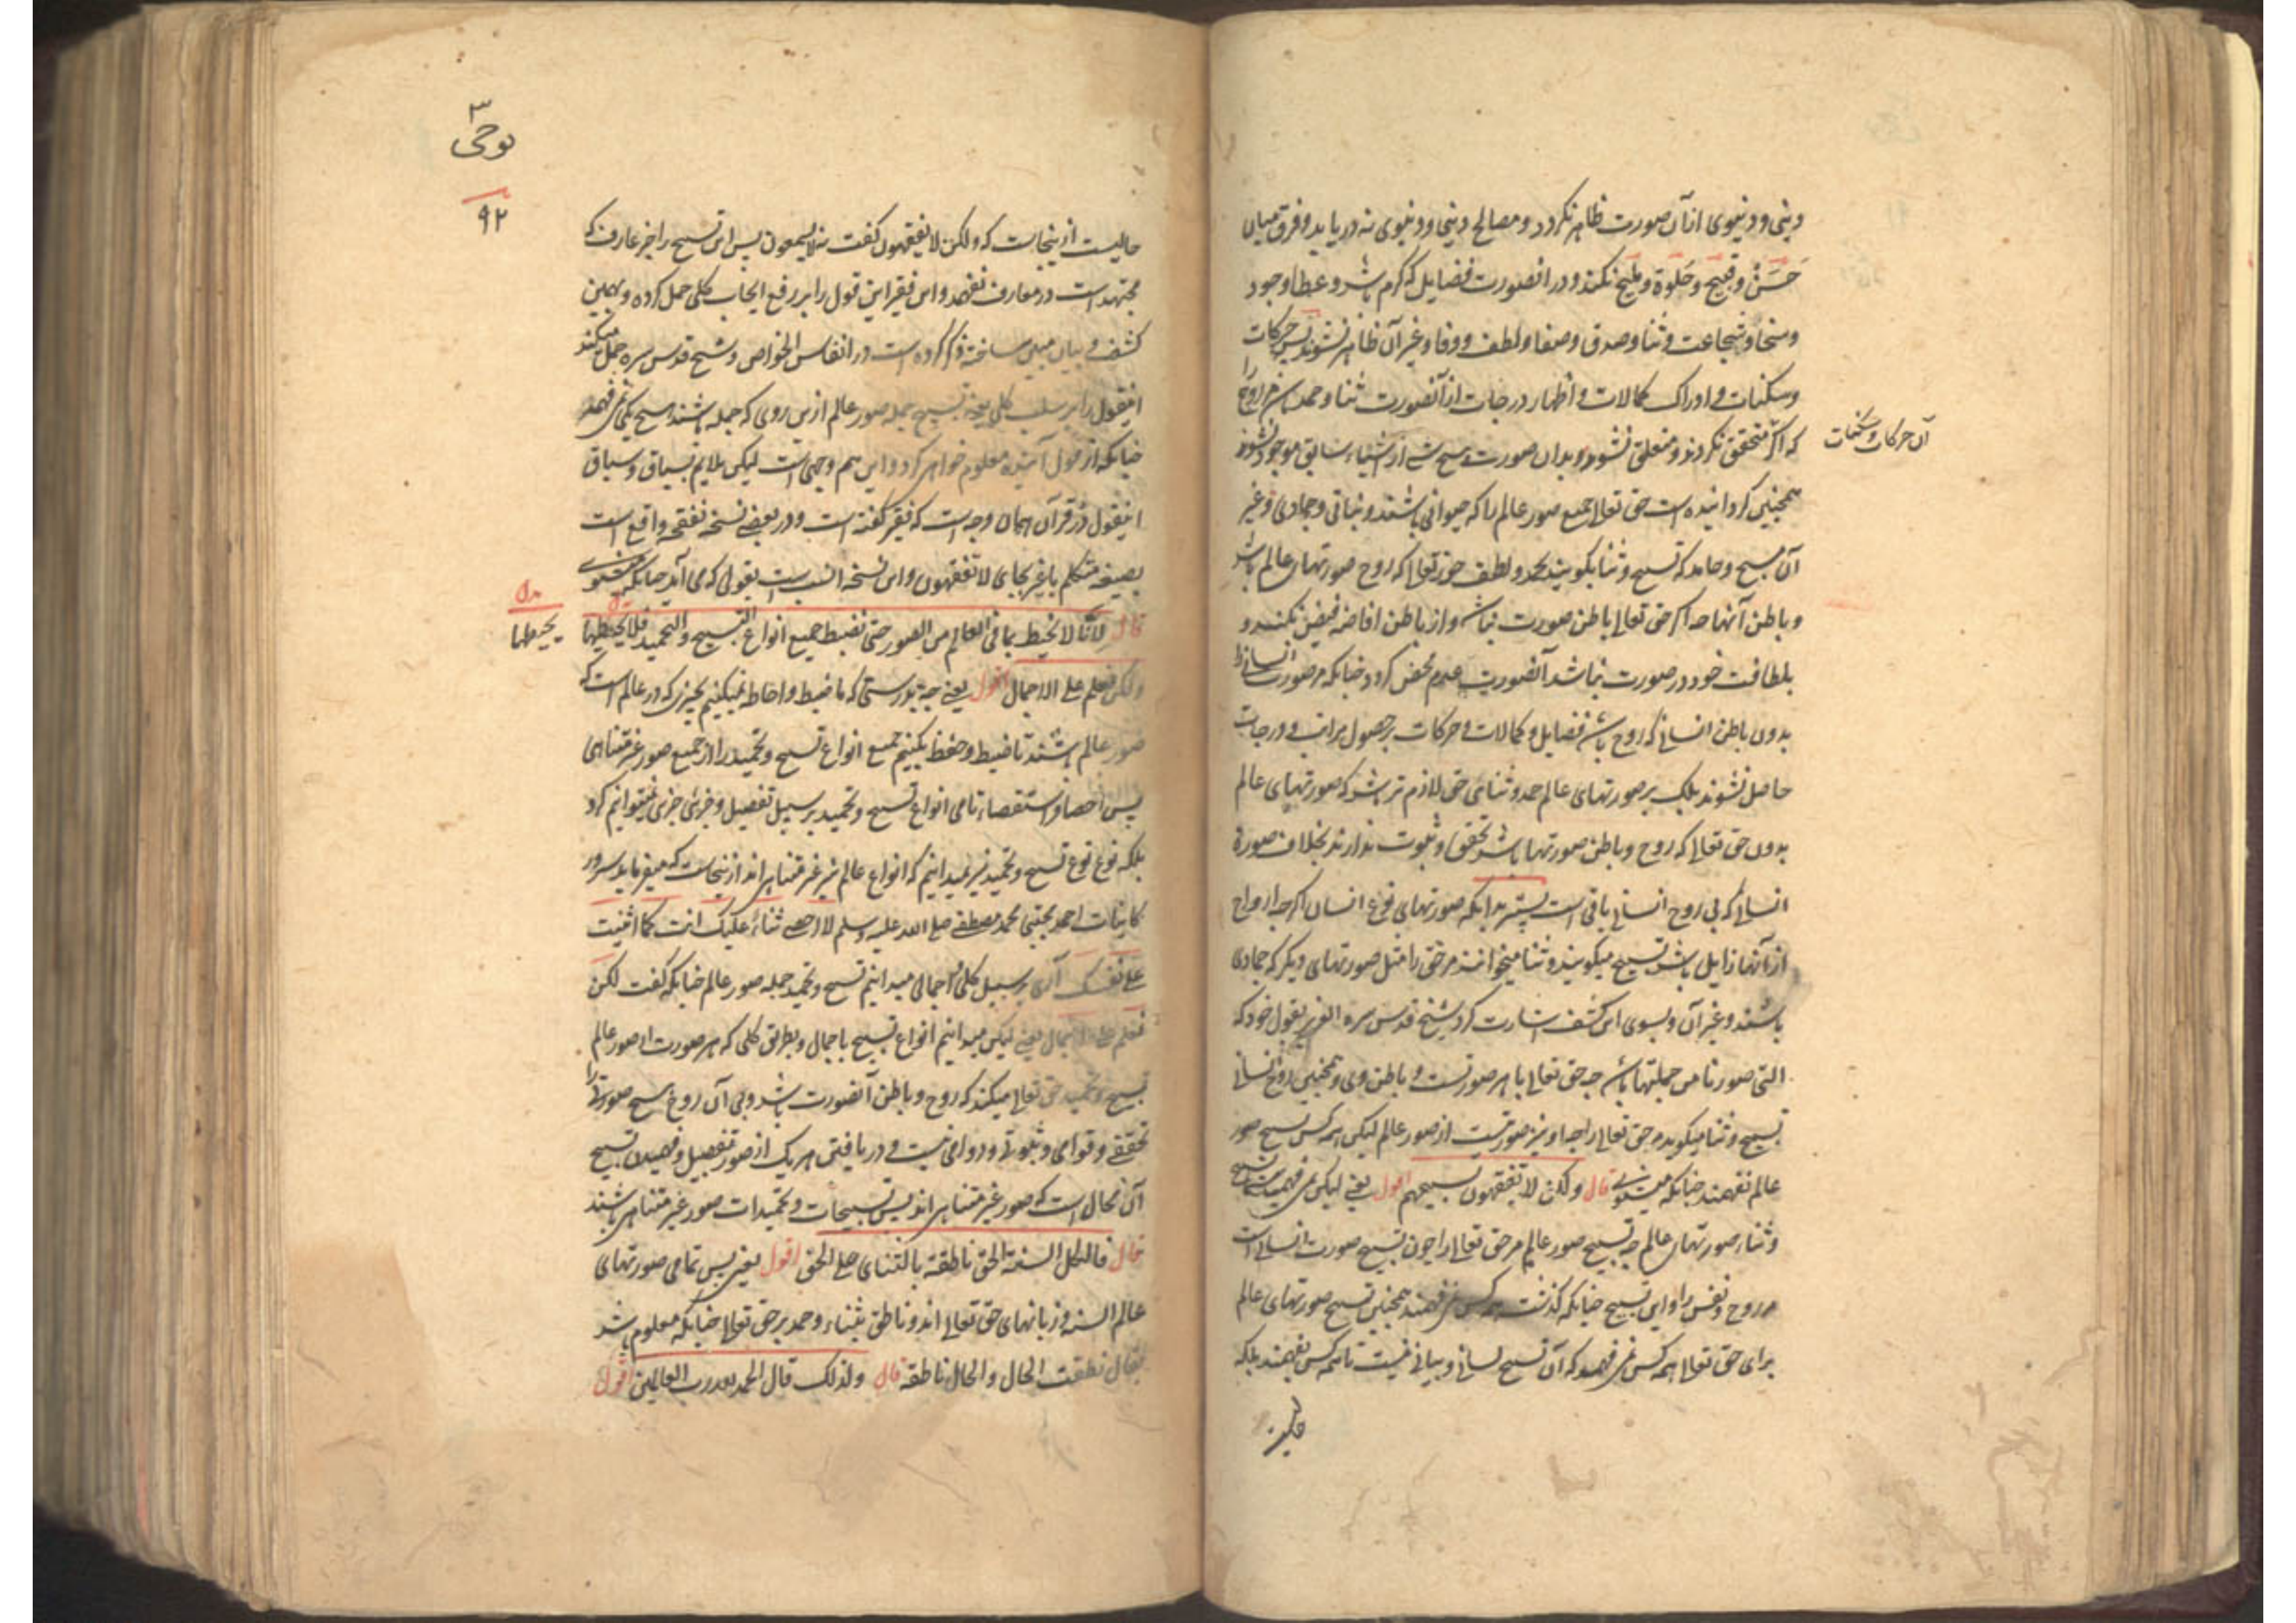 دینی و دنیوی از آن صورت ظاهر نکردد و مصالح دینی و دنیوی نه دریابد و فرق میان
حَسَن و قبیح و حلوة و ملیح نکند و در انصورت فضایل که کرم باشد و عطا و جود
و سخا و شجاعت و ثنا و صدق و صفا و لطف و وفا و غیر آن ظاهر نشوند پس حرکات
و سکنات و ادراک کمالات و اظهار درجات از آنصورت ثنا و حمد باشد مر روح را
که اکر متحقق نکردند و متعلق نشوند بدان صورت هیچ شے از اشیاء سابق موجود نشوند
آن حرکات و سکنات
همچنین کردانیده است حق تعالی جمیع صور عالم را که حیوانی باشند و نباتی و جمادی و غیر
آن مسبح و حامد که تسبیح و ثنا بکویند بحمد و لطف حق تعالی که روح صورتهای عالم باشد
و باطن آنها چه اکر حق تعالی باطن صورت نباشد و از باطن افاضه فیض نکند و
بلطافت خود در صورت نباشد آنصورت عدم محض کردد چنانکه مر صورت انسانی را
بدون باطن انسانی که روح باشد فضایل و کمالات و حرکات بر حصول مراتب و درجات
حاصل نشوند بلکه بر صورتهای عالم حمد و ثنای حق لازم تر باشد که صورتهای عالم
بدون حق تعالی که روح و باطن صورتها باشد تحقق و ثبوت ندارند بخلاف صورة
انسانی که بی روح انسانی باقی است بدانکه صورتهای نوع انسان اکرچه ارواح
از آنها زایل باشد تسبیح میکویند و ثنا میخوانند مر حق را مثل صورتهای دیکر که جمادی
باشند و غیر آن و بسوی این کشف اشارت کرد شیخ قدس سره العزیز بقول خود که
التی صورنا من جملتها باشد چه حق تعالی با هر صورتست و باطن وی و همچنین روح انسانی
تسبیح و ثنا میکوید مر حق تعالی را چه او نیز صورتیست از صور عالم لیکن همه کس تسبیح صور
عالم نفهمند چنانکه قال ولکن لا تفقهون تسبیحهم اقول یعنی لیکن نمی فهمید تسبیح
و ثناء صورتهای عالم چه تسبیح صور عالم مر حق تعالی را چون تسبیح صورت انسانی است
مر روح و نفس را و این تسبیح چنانکه کذشت همه کس نمی فهمند همچنین تسبیح صورتهای عالم
برای حق تعالی همه کس نمی فهمد که آن تسبیح لسانی و بیانی نیست تا همه کس بفهمند بلکه
۳
نوحی
۹۲
حالیست ازینجاست که ولکن لا تفقهون کفت نه لا یسمعون پس این تسبیح را جز عارف که
مجتهد است در معارف نفهمد و این فقیر این قول را بر رفع ایجاب کلی حمل کرده و بهمین
کشف و بیان مبین ساخته ذکر کرده است در انفاس الخواص و شیخ قدس سره حمل میکند
اینقول را بر سلب کلی یعنی تسبیح جمله صور عالم ازین روی که جمله باشند هیچ یکی نمی فهمد
چنانکه از قول آینده معلوم خواهد کردد و این هم وجهی است لیکن ملایم بسیاق و سباق
اینقول در قرآن همان وجه است که فقیر کفته است و در بعضی نسخه نفقه واقع است
بصیغه متکلم بالغیر بجای لا تفقهون و این نسخه انسب است بقولی که می آید چنانکه میشنوی
قال لانا لا نحیط بما فی العالم من الصور حتی نضبط جمیع انواع التسبیح و التحمید فلا یحیطها
بدل
یحیطها
ولکن نعلم علی الاجمال اقول یعنی چه بدرستی که ما ضبط و احاطه نمیکنیم بچیزی که در عالم است که
صور عالم باشند تا ضبط و حفظ بکنیم جمیع انواع تسبیح و تحمید را از جمیع صور غیر متناهی
پس احصا و استقصاء تمامی انواع تسبیح و تحمید بر سبیل تفصیل و جزئی جزئی نمیتوانیم کرد
بلکه نوع نوع تسبیح و تحمید نیز نمیدانیم که انواع عالم نیز غیر متناهی اند ازینجاست که میفرماید سرور
کاینات احمد مجتبی محمد مصطفی صلی الله علیه وسلم لا احصی ثناء علیک انت کما اثنیت
علی نفسک آری بر سبیل کلی و اجمالی میدانیم تسبیح و تحمید جمله صور عالم چنانکه کفت لکن
نعلم علی الاجمال یعنی لیکن میدانیم انواع تسبیح باجمال و بطریق کلی که هر صورت از صور عالم
تسبیح و تحمید حق تعالی میکند که روح و باطن آنصورت باشد و بی آن روح هیچ صورتی را
تحققی و قوامی و ثبوتی و دوامی نیست و دریافتن هر یک از صور بتفصیل و فهمیدن تسبیح
آن محال است که صور غیر متناهی اند پس تسبیحات و تحمیدات صور غیر متناهی باشند
قال فالکل السنة الحق ناطقة بالثنای علی الحق اقول یعنی پس تمامی صورتهای
عالم السنه و زبانهای حق تعالی اند و ناطق بثناء و حمد بر حق تعالی چنانکه معلوم باشد
یقال نطقت الحال والحال ناطقة قال ولذلک قال الحمد لله رب العالمین اقول